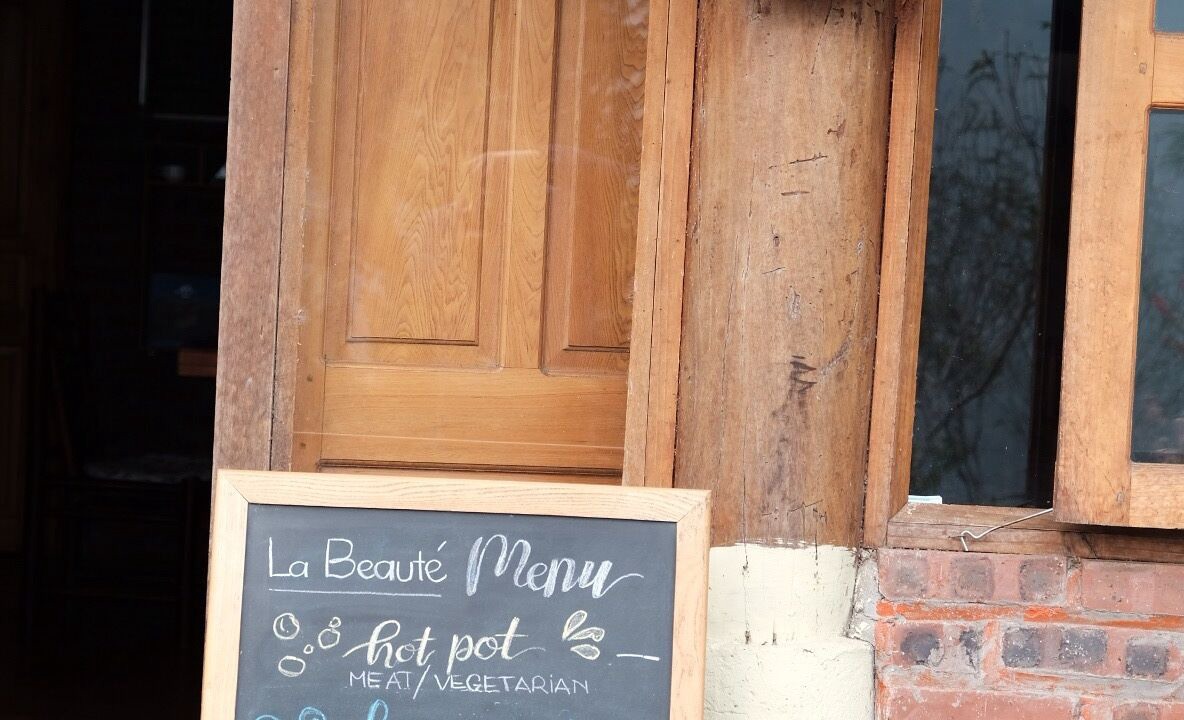 La Beauté Menu
hot pot
MEAT/VEGETARIAN